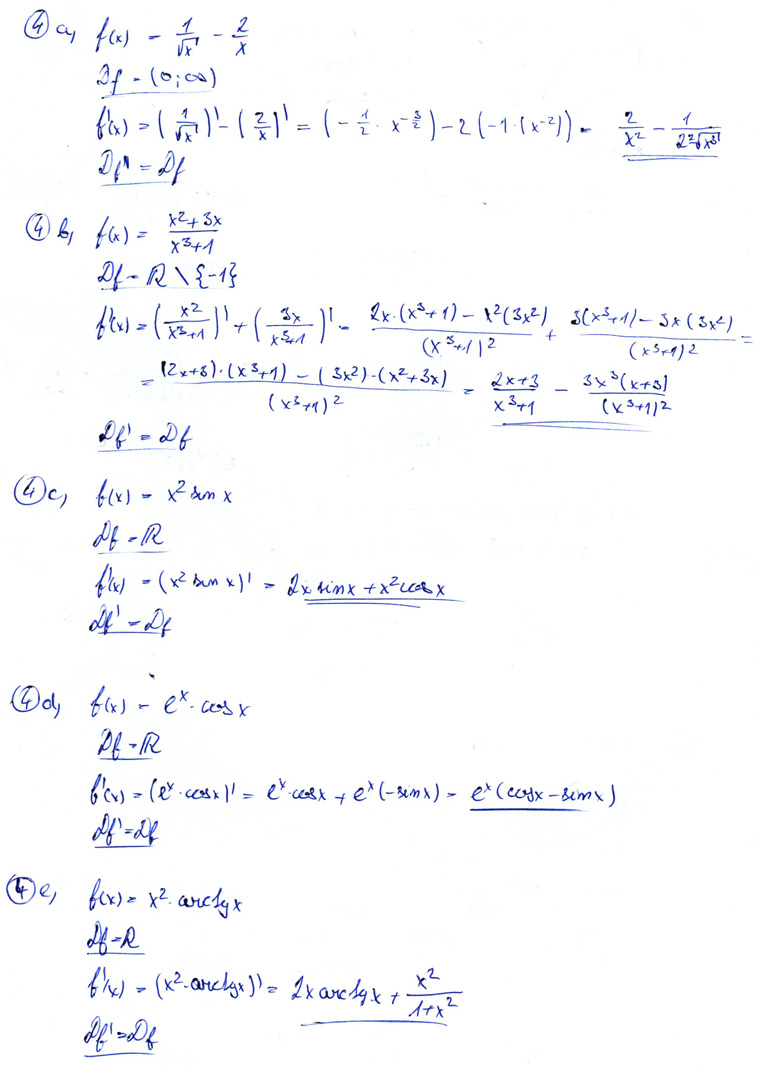 4 a, f(x) = 1/√x - 2/x
Df = (0; ∞)
f'(x) = (1/√x)' - (2/x)' = (-1/2 · x^(-3/2)) - 2(-1·(x^-2)) = 2/x² - 1/(2 ²√x³)
Df' = Df
4 b, f(x) = (x²+3x)/(x³+1)
Df = ℝ \ {-1}
f'(x) = (x²/(x³+1))' + (3x/(x³+1))' = (2x·(x³+1) - x²(3x²))/(x³+1)² + (3(x³+1) - 3x(3x²))/(x³+1)² =
= ((2x+3)·(x³+1) - (3x²)·(x²+3x))/(x³+1)² = (2x+3)/(x³+1) - (3x³(x+3))/(x³+1)²
Df' = Df
4 c, f(x) = x² sin x
Df = ℝ
f'(x) = (x² sin x)' = 2x sin x + x² cos x
Df' = Df
4 d, f(x) = e^x · cos x
Df = ℝ
f'(x) = (e^x · cos x)' = e^x · cos x + e^x (-sin x) = e^x (cos x - sin x)
Df' = Df
4 e, f(x) = x² · arctg x
Df = ℝ
f'(x) = (x² · arctg x)' = 2x arctg x + x²/(1+x²)
Df' = Df